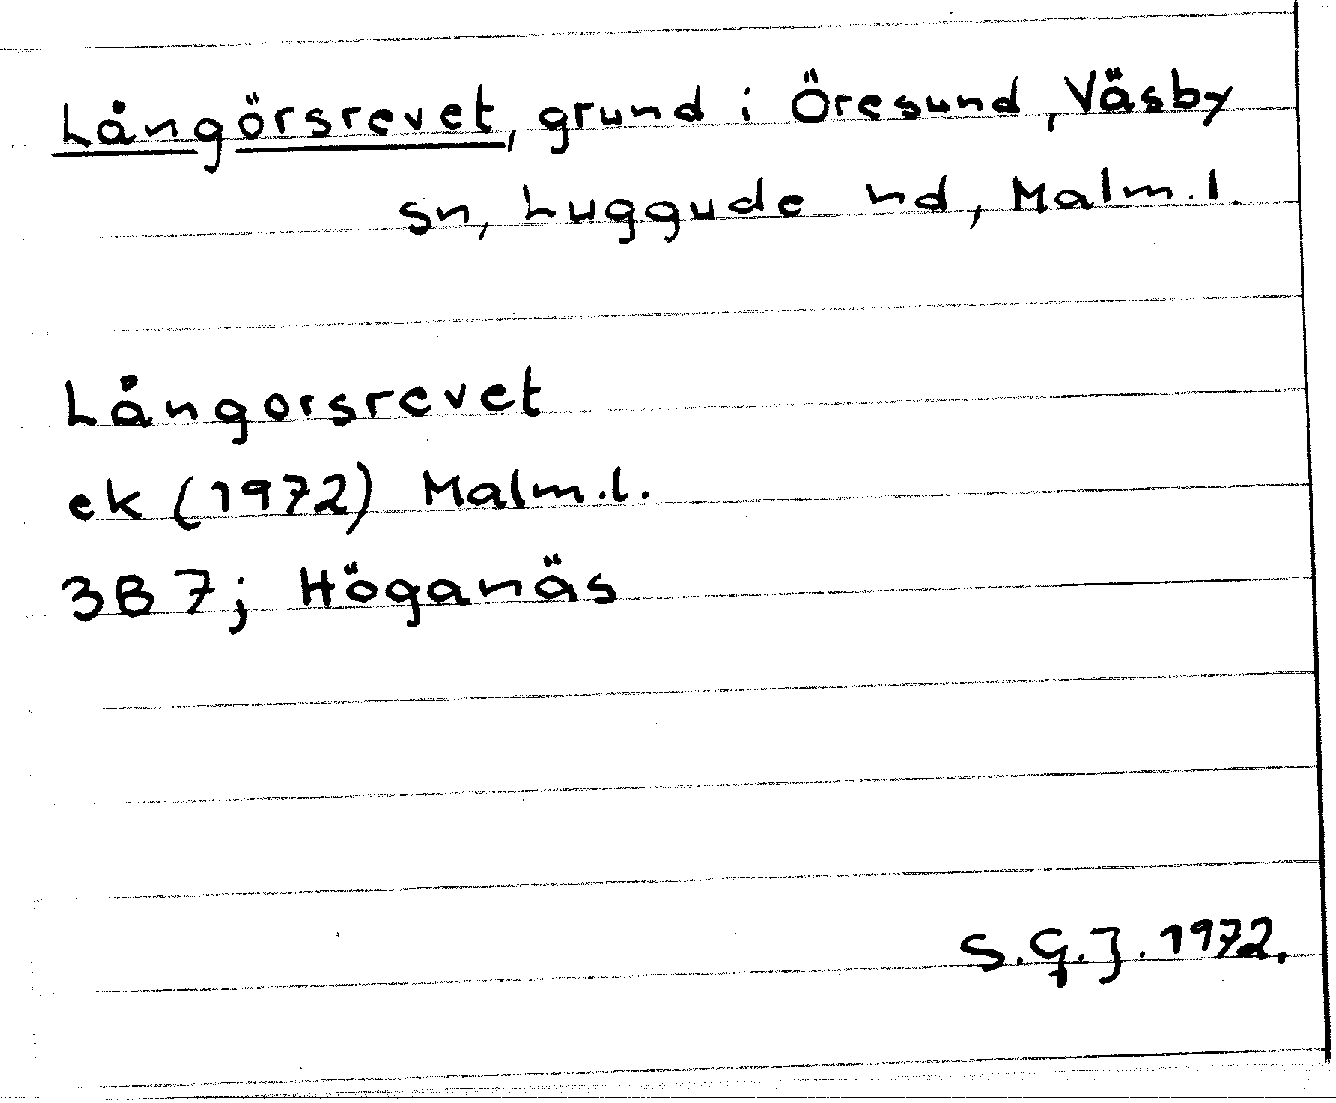 Långörsrevet, grund i Öresund, Väsby
sn, Luggude hd, Malm.l.
Långorsrevet
ek (1972) Malm.l.
3B7; Höganäs
S.G.J. 1972.